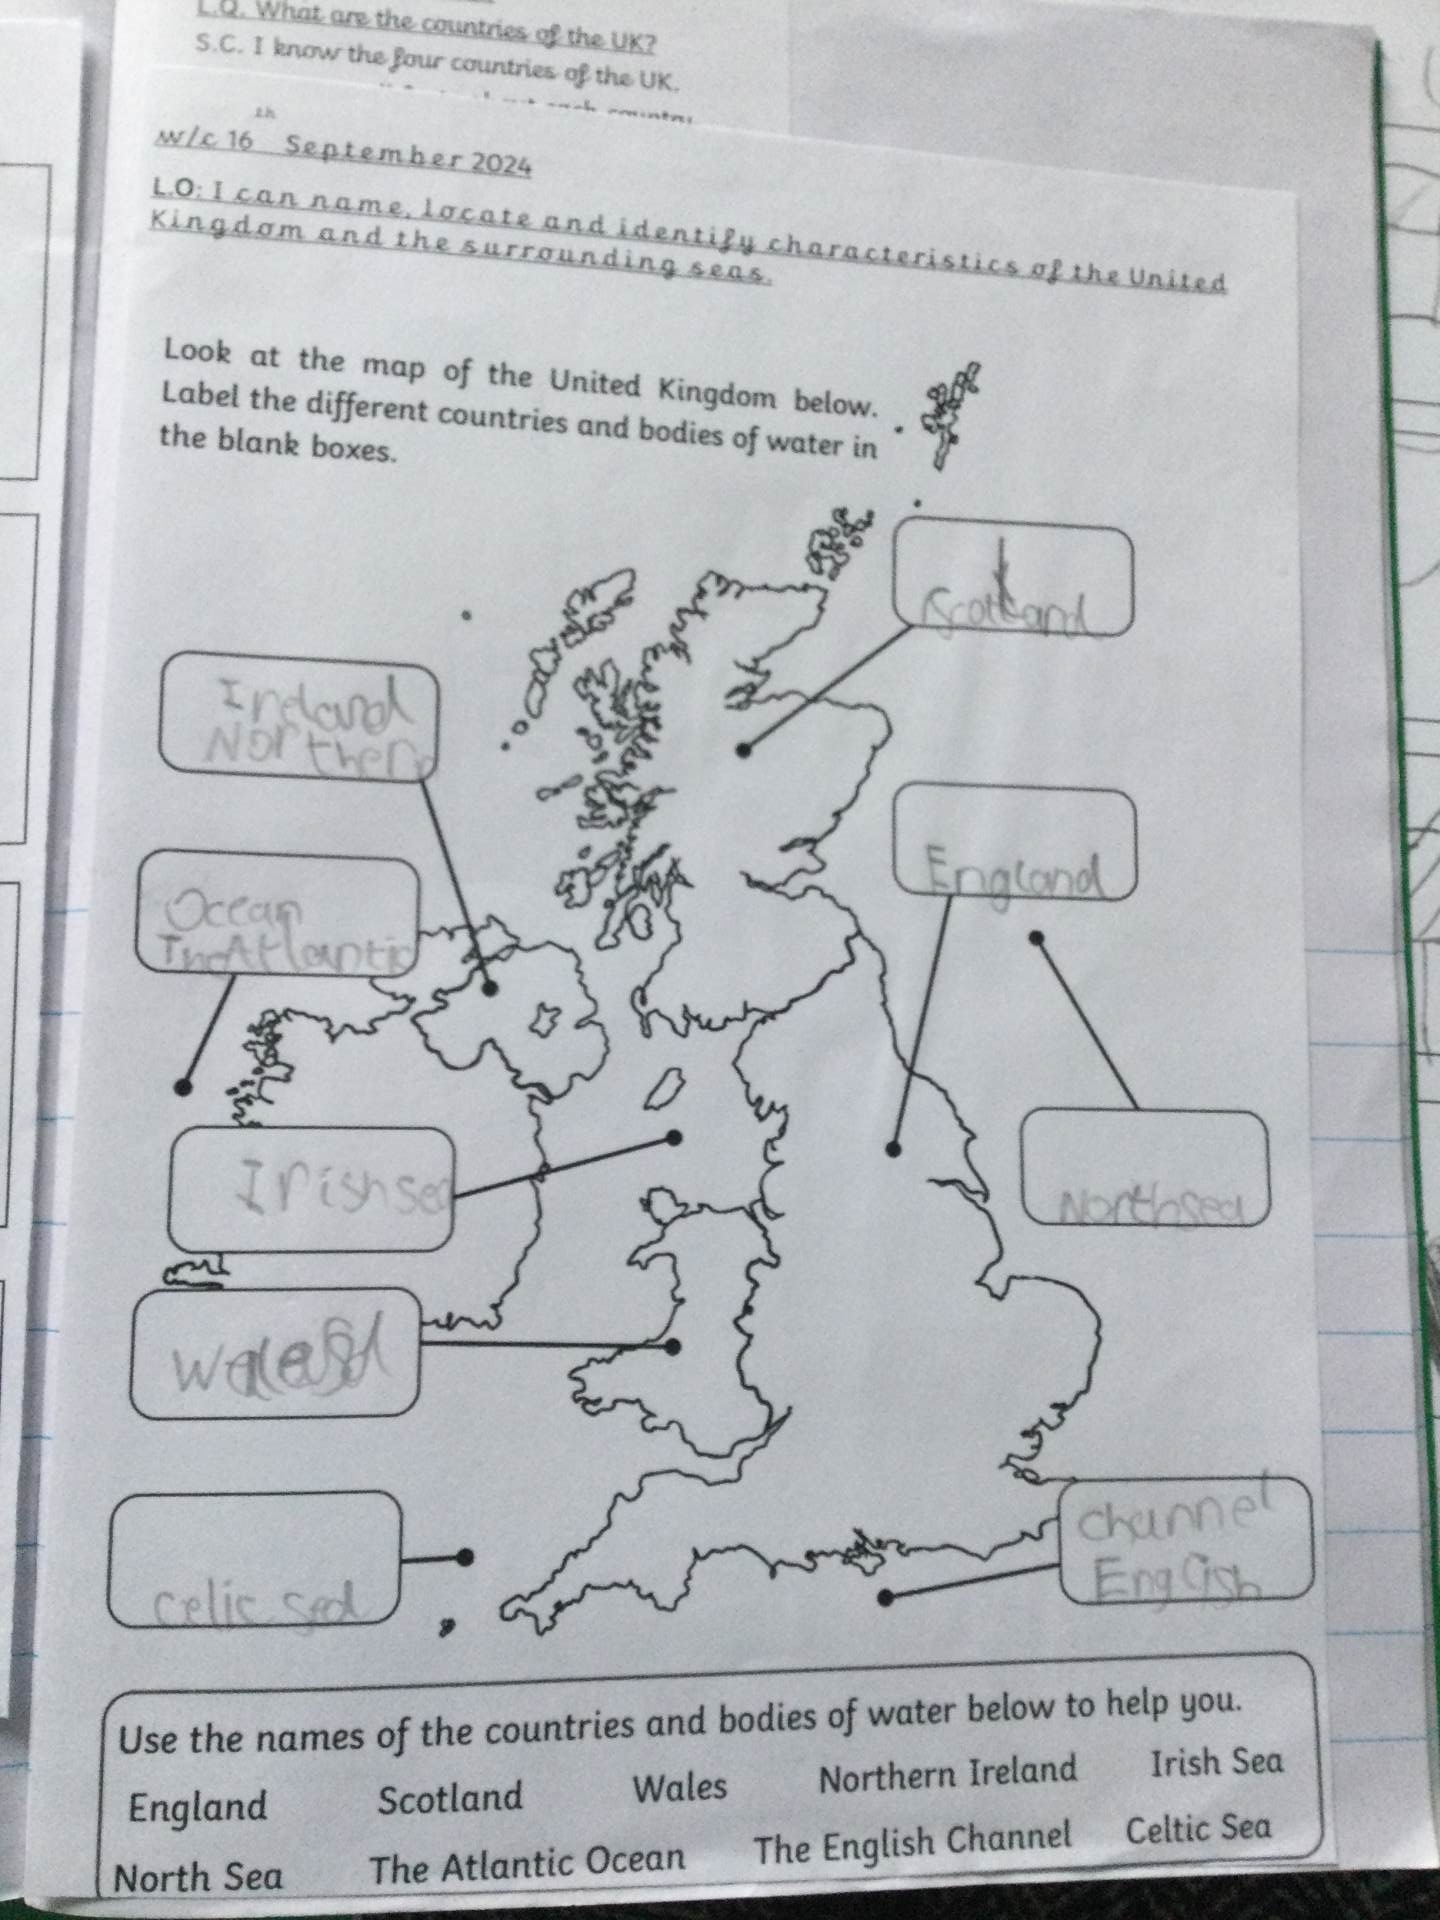 L.Q. What are the countries of the UK?
S.C. I know the four countries of the UK.
w/c 16th September 2024
L.O: I can name, locate and identify characteristics of the United
Kingdom and the surrounding seas.
Look at the map of the United Kingdom below.
Label the different countries and bodies of water in
the blank boxes.
Scotland
Ireland
Northern
England
Ocean
The Atlantic
Irish sea
North sea
Channel
English
Celic sea
Use the names of the countries and bodies of water below to help you.
England Scotland Wales Northern Ireland Irish Sea
North Sea The Atlantic Ocean The English Channel Celtic Sea